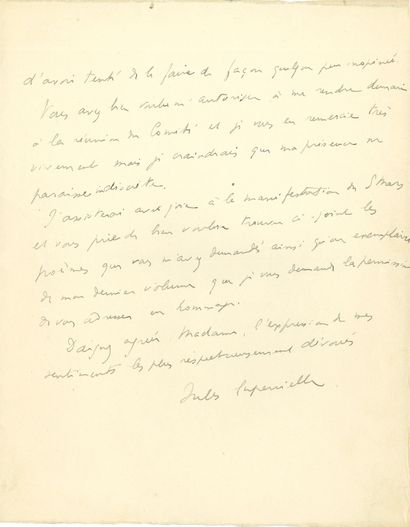 d'avoir tenté de le faire de façon quelque peu inopinée.
Vous avez bien voulu m'autoriser à me rendre demain
à la réunion du Comité et je vous en remercie très
vivement mais je craindrais que ma présence ne
paraisse indiscrète.
J'assisterai avec joie à la manifestation du 5 mars
et vous prie de bien vouloir trouver ci-joint les
poèmes que vous m'avez demandés ainsi qu'un exemplaire
de mon dernier volume que je vous demande la permission
de vous adresser en hommage.
Daignez agréer, Madame, l'expression de mes
sentiments les plus respectueusement dévoués
Jules Supervielle